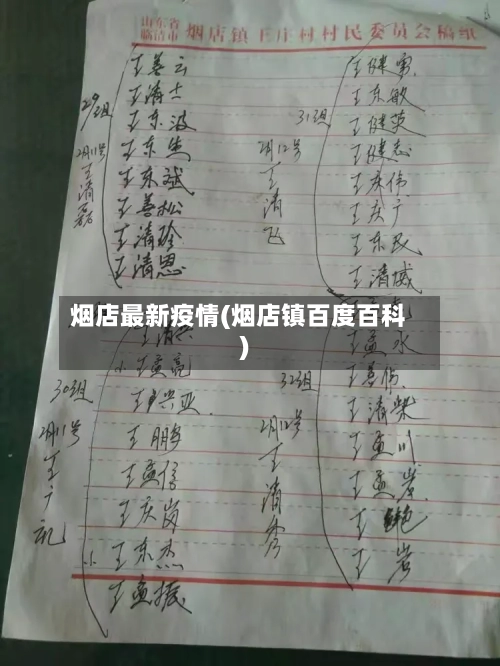 山东省
临清市 烟店镇王庄村村民委员会稿纸
29组
2月11号
王清磊
王善云
王清士
王东波
王东生
王东斌
王善松
王清玲
王清恩
31组
2月12号
王清飞
王健勇
王东敏
王健英
王健志
王庆伟
王庆广
王东民
王清城
烟店最新疫情(烟店镇百度百科
)
30组
2月11号
小王孟亮
王兴亚
王鹏
王孟信
王庆岗
小王东杰
王孟振
32组
2月12号
王清
王孟水
王善伟
王清柴
王孟川
王孟岩
王艳
王岩